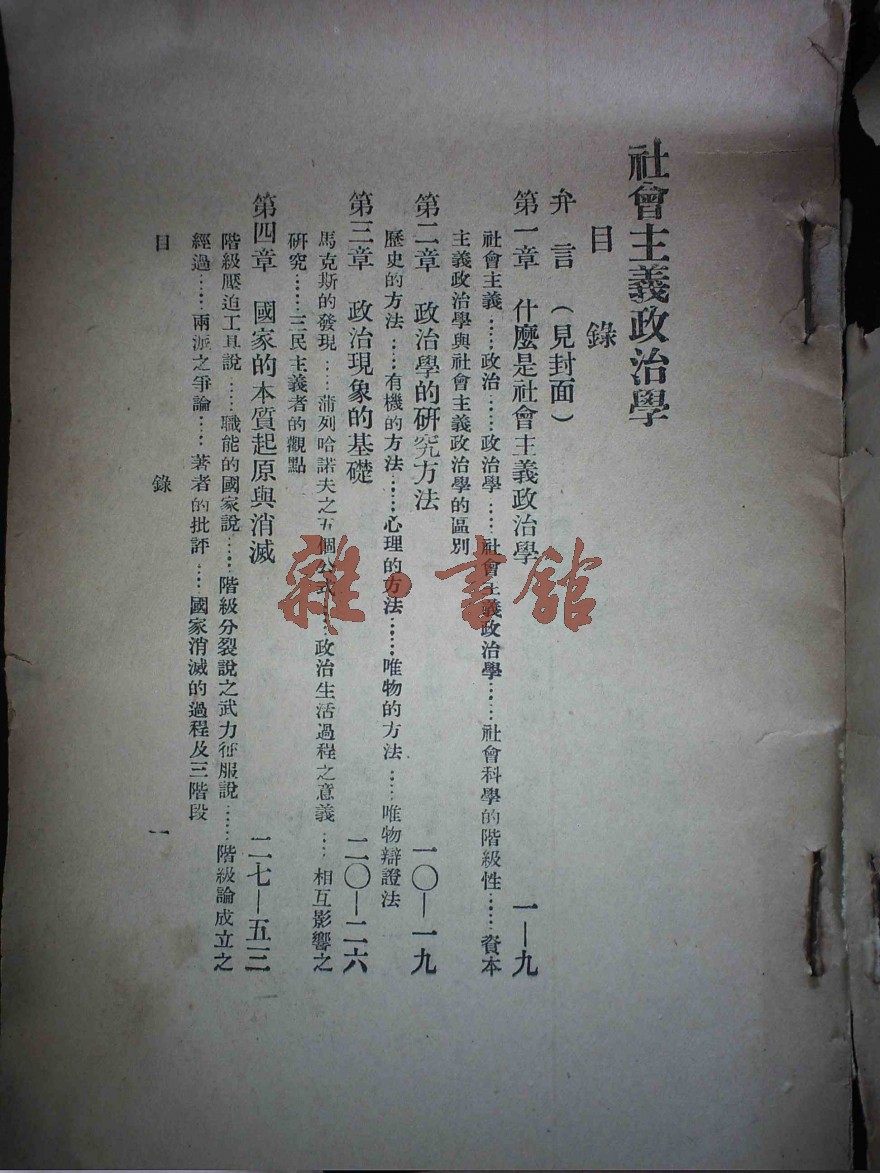 社會主義政治學
目錄
弁言（見封面）
第一章　什麼是社會主義政治學　一—九
社會主義……政治……政治學……社會主義政治學……社會科學的階級性……資本
主義政治學與社會主義政治學的區別
第二章　政治學的研究方法　一〇—一九
歷史的方法……有機的方法……心理的方法……唯物的方法……唯物辯證法
第三章　政治現象的基礎　二〇—二六
馬克斯的發現……蒲列哈諾夫之五個公式……政治生活過程之意義……相互影響之
研究……三民主義者的觀點
第四章　國家的本質起原與消滅　二七—五三
階級壓迫工具說……職能的國家說……階級分裂說之武力征服說……階級論成立之
經過……兩派之爭論……著者的批評……國家消滅的過程及三階段
目錄　一
雜·書館